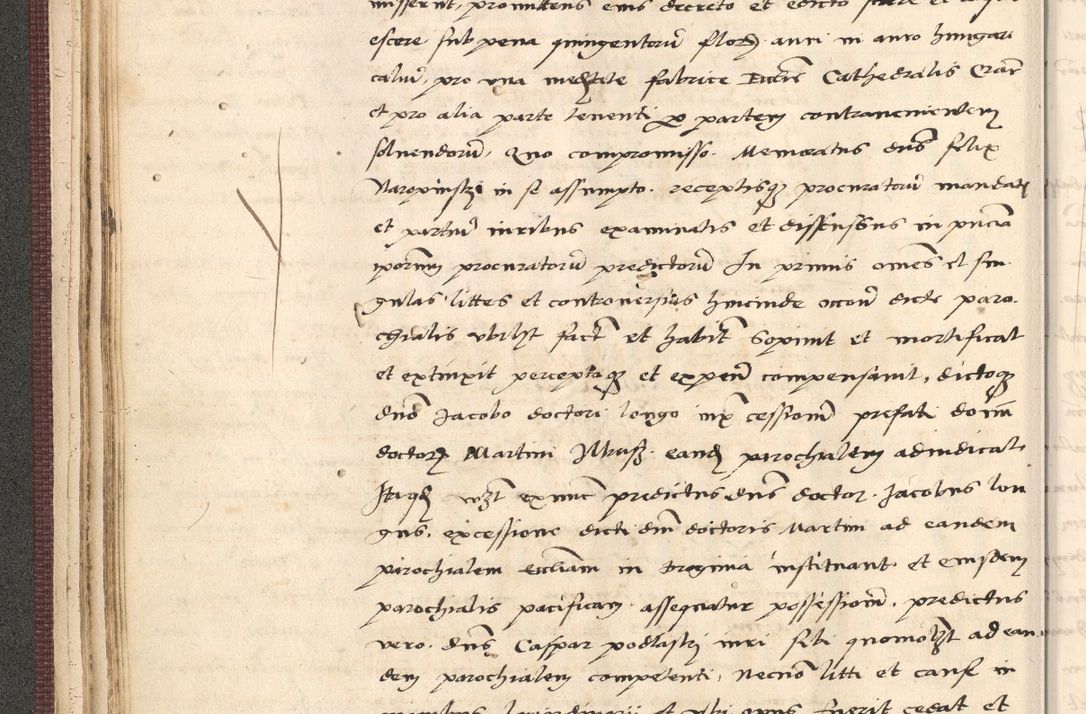 misserunt, promittens eius decreto et edicto stare et
escere sub pena quingentorū floren̄ auri in auro hungari
caliū, pro una medietate fabrice Eccl̄ie Cathedralis Crac̄
et pro alia parte tenenti per partem contravenientem
solvendorū, Quo compromisso Memoratus dn̄s Felix
Naropinski in se assumpto receptisq; procuratorū mandatis
et partiū iuribus examinatis et discussus in pn̄cia
ip̄orum procuratorū predictorū In primis om̄es et sin
gulas littes et controversias hincinde occōe dicte paro
chialis ubilt̄ fact̄ et habit̄ Sopivit et mortificat
et extinxit perceptaq; et expen̄ compensavit, dictoq;
dn̄o Jacobo doctori longo iux̄ cessionē prefati domī
doctoris Martini eand̄ parochialem adiudicat
Itaq; ut extunc predictus dn̄s doctor Jacobus lon
gus, ex cessione dicti dn̄i doctoris Martini ad eandem
parochialem eccl̄iam in instituant et eiusdem
parochialis pacificam assequatur possessionē, predictus
vero dn̄s Caspar podlaski iuri sibi quomolt̄ ad ean
dem parochialem competenti, Necnō litti et cause in
et ubi opus fuerit cedat et